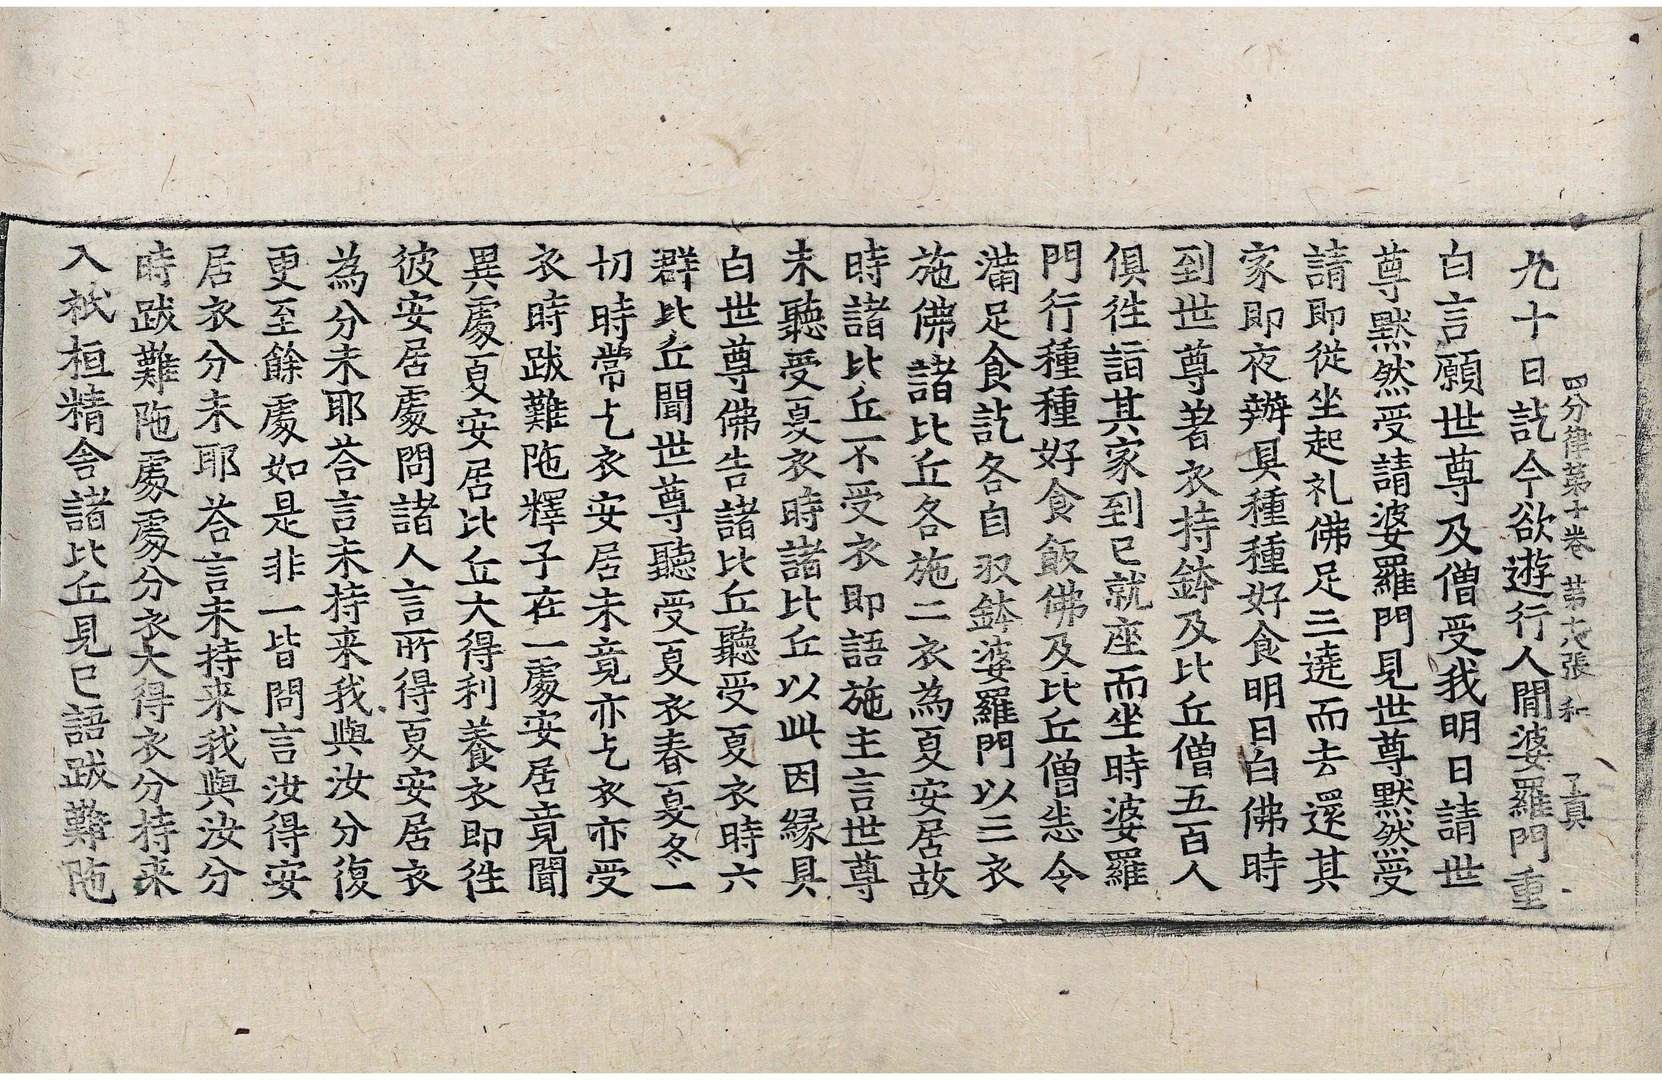 四分律第十卷 第十六張 和 了真
九十日訖今欲遊行人間婆羅門重
白言願世尊及僧受我明日請世
尊默然受請婆羅門見世尊默然受
請即從坐起礼佛足三遶而去還其
家即夜辦具種種好食明日白佛時
到世尊著衣持鉢及比丘僧五百人
俱往詣其家到已就座而坐時婆羅
門行種種好食飯佛及比丘僧悉令
滿足食訖各自収鉢婆羅門以三衣
施佛諸比丘各施二衣為夏安居故
時諸比丘不受衣即語施主言世尊
未聽受夏衣時諸比丘以此因緣具
白世尊佛告諸比丘聽受夏衣時六
群比丘聞世尊聽受夏衣春夏冬一
切時常乞衣安居未竟亦乞衣亦受
衣時跋難陁釋子在一處安居竟聞
異處夏安居比丘大得利養衣即往
彼安居處問諸人言所得夏安居衣
為分未耶荅言未持来我與汝分復
更至餘處如是非一皆問言汝得安
居衣分未耶荅言未持来我與汝分
時跋難陁處處分衣大得衣分持来
入祇桓精舍諸比丘見已語跋難陁